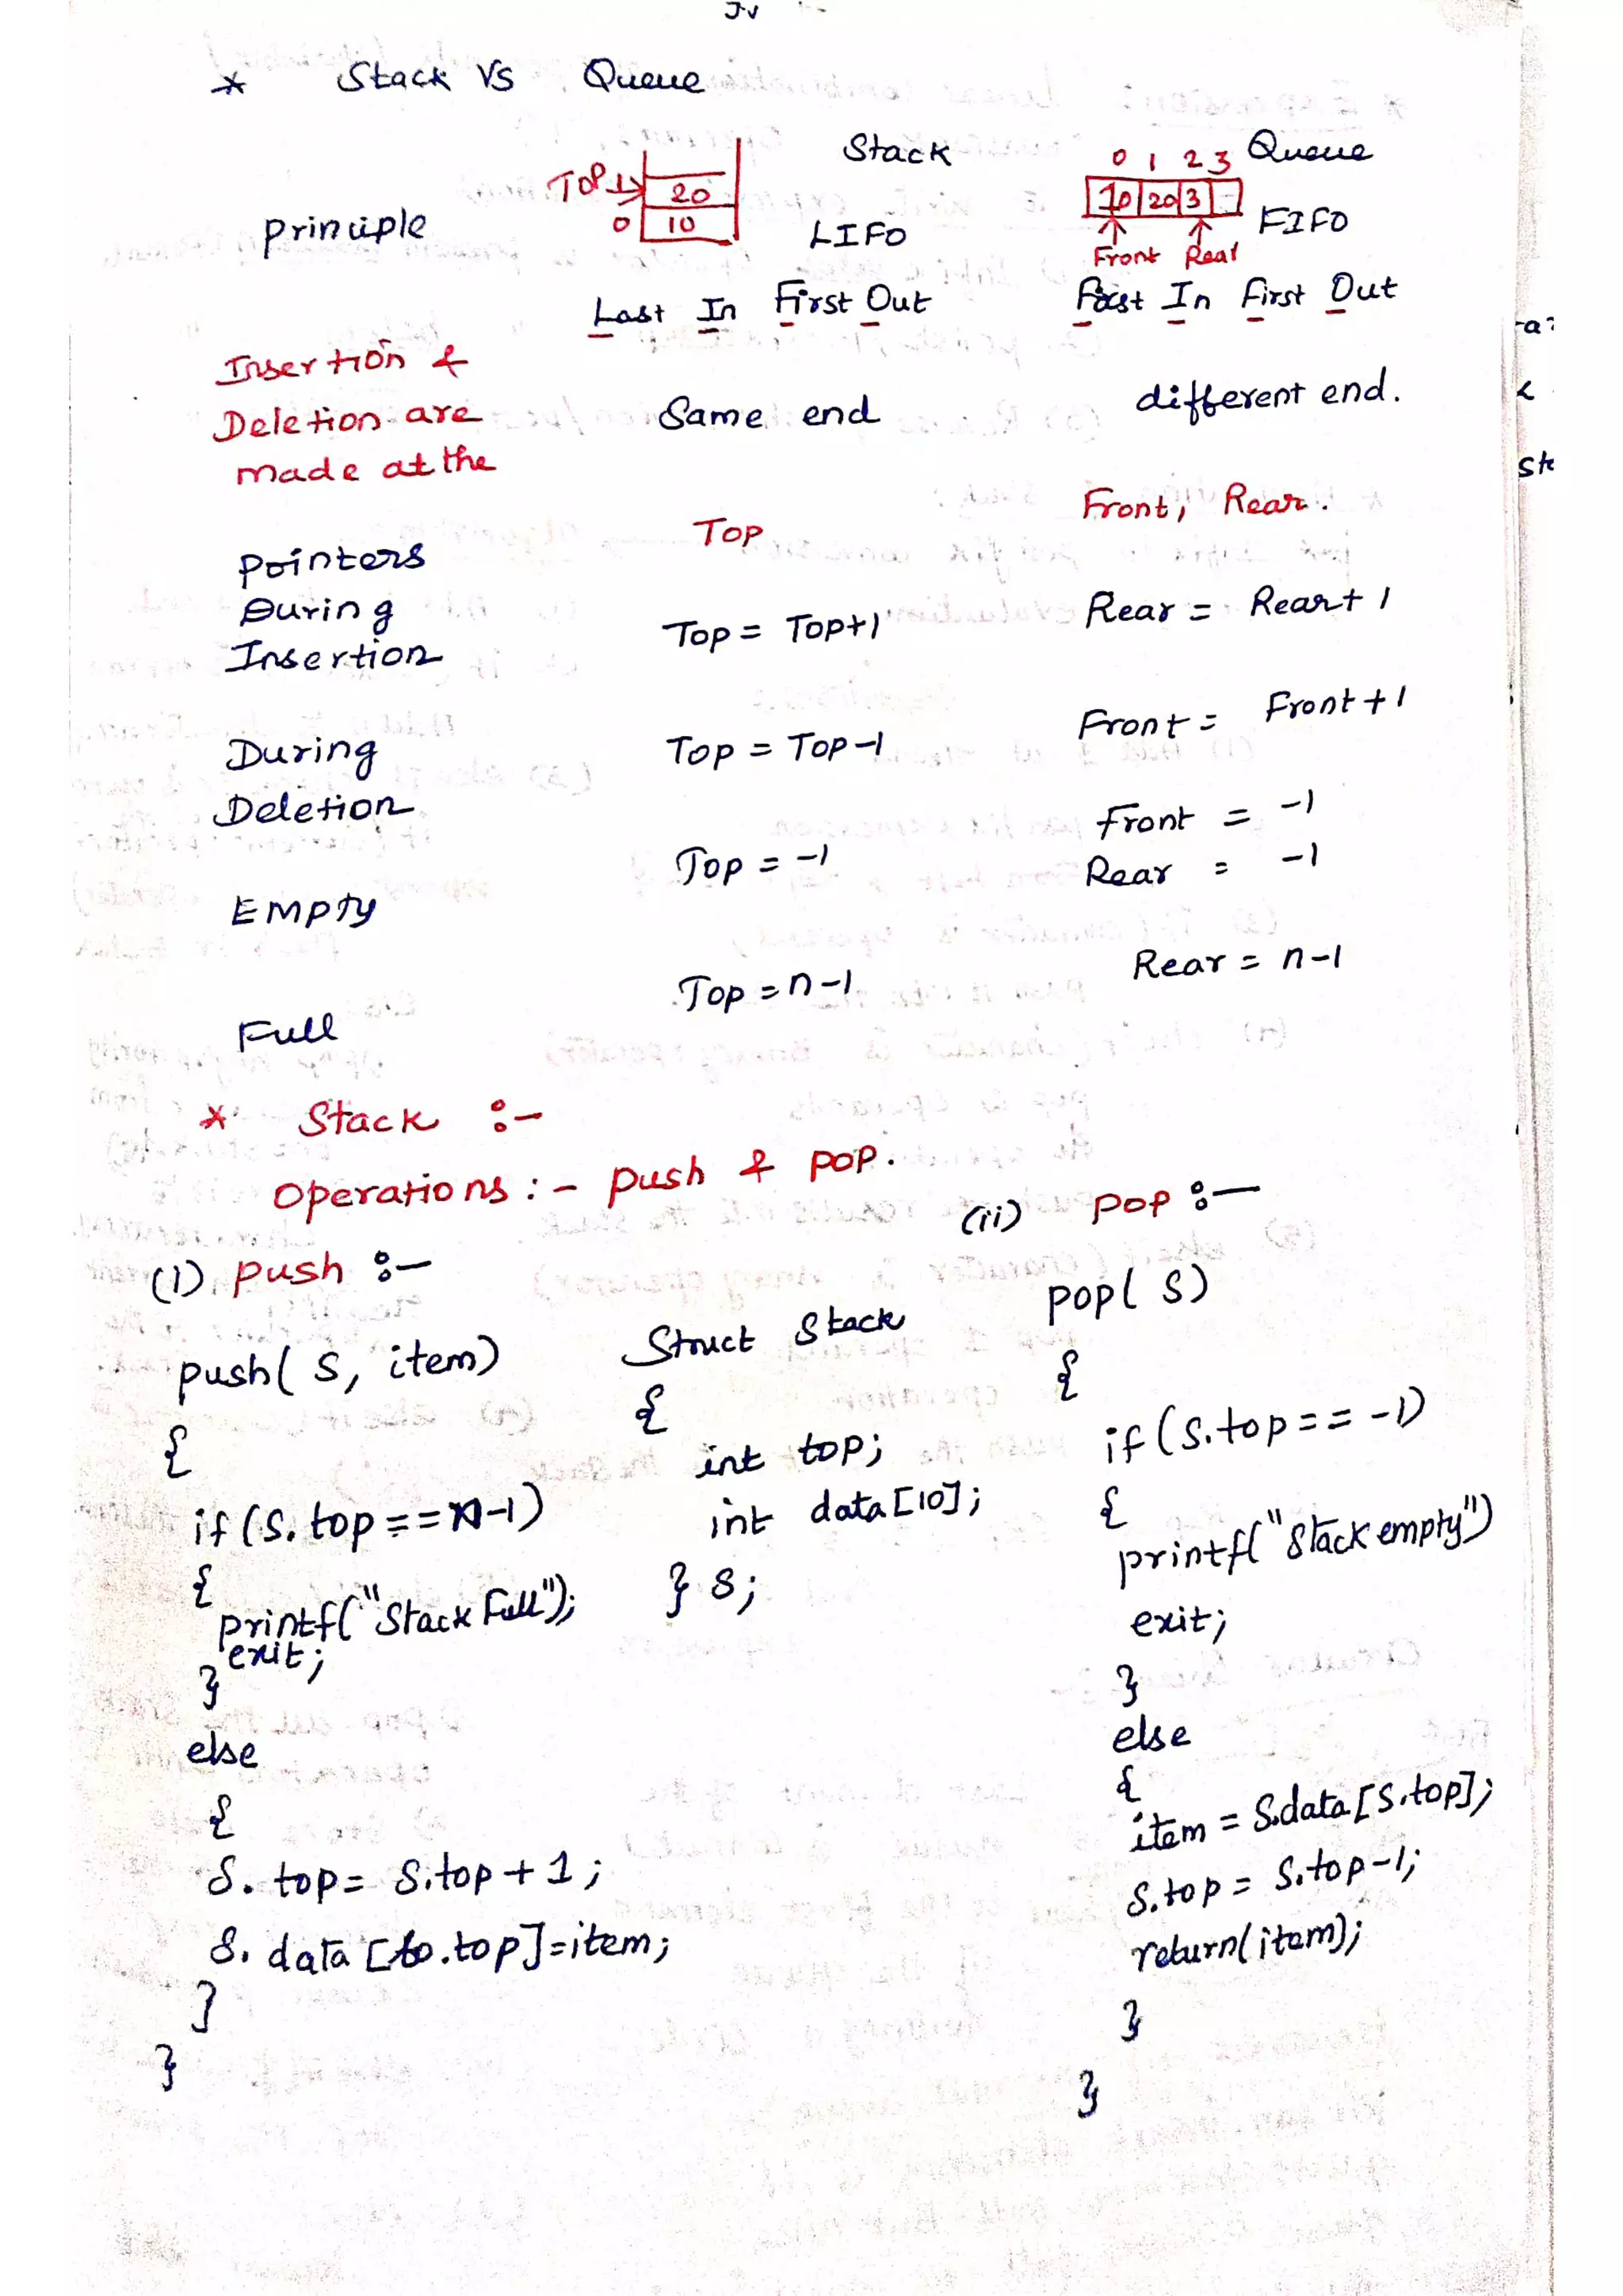 * Stack VS Queue
Stack
Queue
0 1 2 3
TOP 1 20
0 10
10 20 3
Front Rear
Principle
LIFO
FIFO
Last In First Out
First In First Out
Insertion &
Deletion are
made at the
Same end
different end.
Pointers
Top
Front, Rear.
During
Insertion
Top = Top+1
Rear = Rear+1
During
Deletion
Top = Top-1
Front = Front+1
Empty
Top = -1
Front = -1
Rear = -1
Full
Top = n-1
Rear = n-1
* Stack :-
Operations :- push & pop.
(i) push :-
push( S, item)
{
if (S.top == n-1)
{
printf("Stack Full");
exit;
}
else
{
S. top = S.top + 1;
S. data [s.top]=item;
}
}
Struct Stack
{
int top;
int data[10];
} S;
(ii) pop :-
pop( S)
{
if (S.top == -1)
{
printf("Stack empty")
exit;
}
else
{
item = S.data[S.top];
S.top = S.top-1;
return(item);
}
}